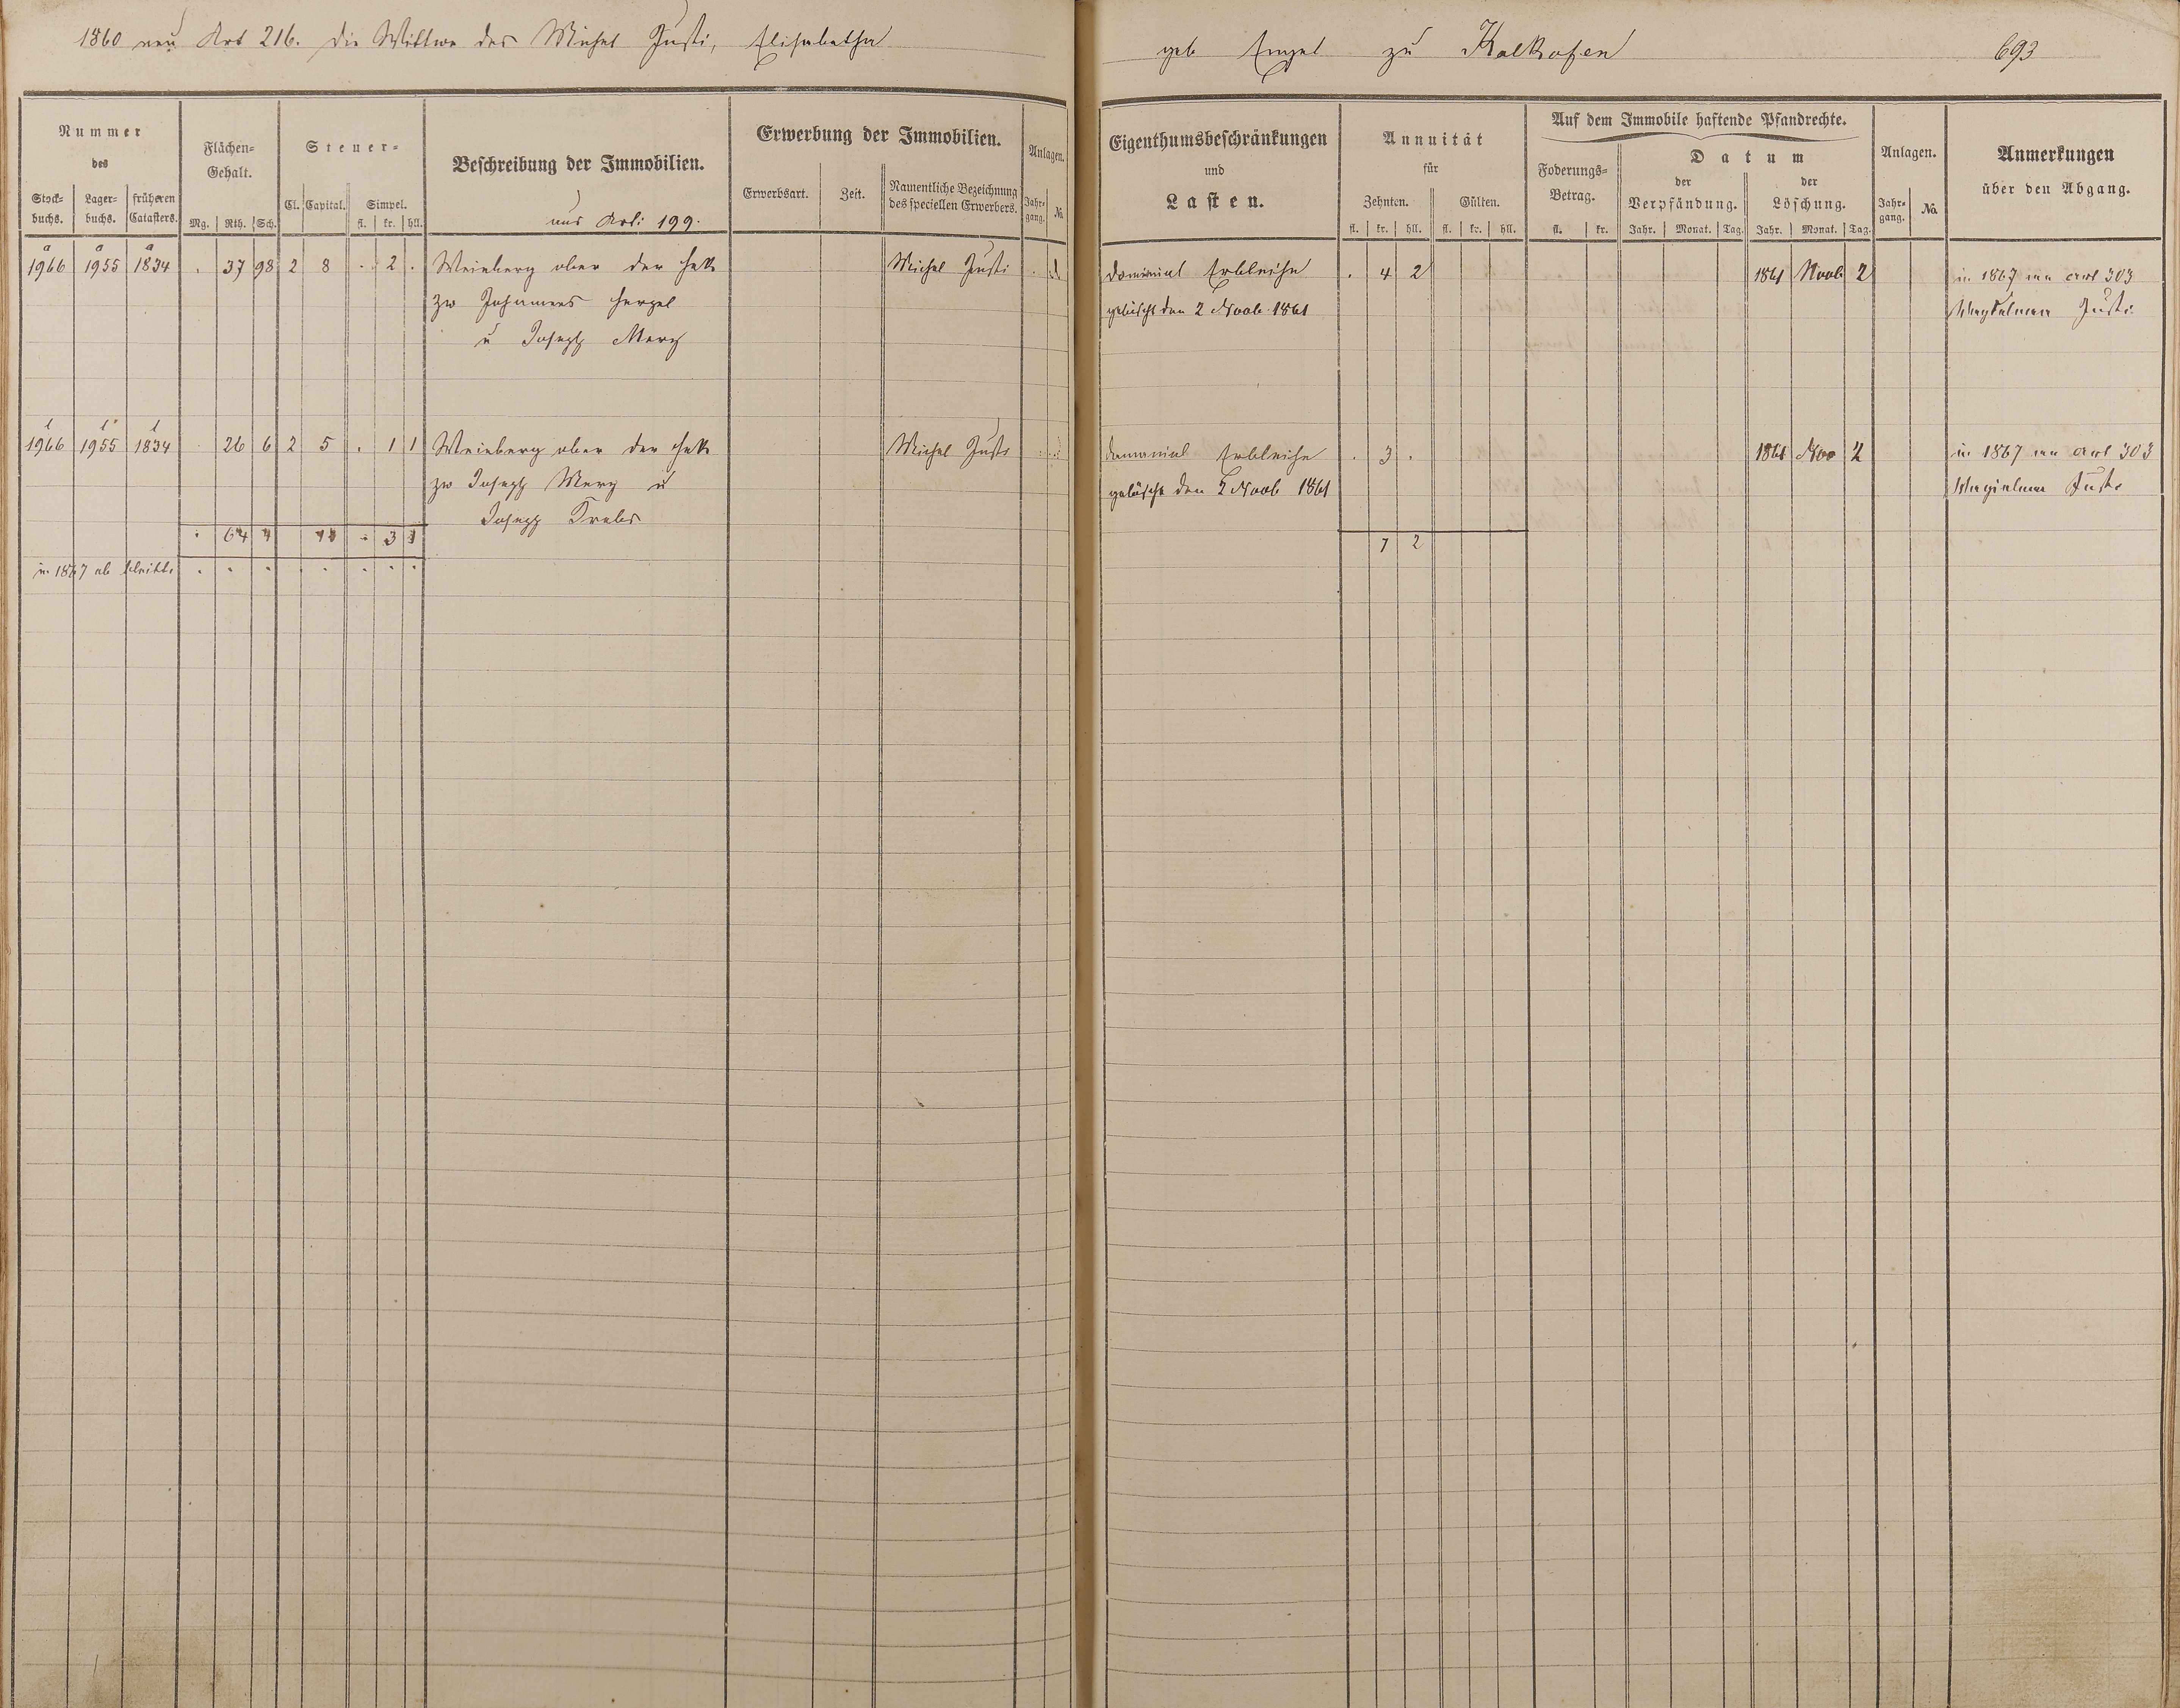 1860 neu Art 216. Die Wittwe des Michel Justi, Elisabetha geb Engel zu Kalkofen 693
Nummer des
Stock-buchs. Lager-buchs. früheren Catasters.
Flächen-Gehalt.
Mg. Rth. Sch.
Steuer-
Cl. Capital. Simpel.
fl. kr. hll.
Beschreibung der Immobilien.
aus Arti 199.
Erwerbung der Immobilien.
Erwerbsart. Zeit. Namentliche Bezeichnung des speciellen Erwerbers.
Anlagen.
Jahr-gang. No.
Eigenthumsbeschränkungen
und
Lasten.
Annuität
für
Zehnten. Gülten.
fl. kr. hll. fl. kr. hll.
Auf dem Immobile haftende Pfandrechte.
Foderungs-Betrag.
fl. kr.
Datum
der Verpfändung. der Löschung.
Jahr. Monat. Tag. Jahr. Monat. Tag.
Anlagen.
Jahr-gang. No.
Anmerkungen
über den Abgang.
a a a
1966 1955 1834 . 37 98 2 8 . 2 . Weinberg ober der Michel Justi dominial Erbleihe . 4 2 1861 Novb 2 in 1867 an art 303
zw Johannes Hergel gelöscht den 2 Novb. 1861 Justi
u Joseph Merg
1966 1955 1834 . 26 6 2 5 . 1 1 Weinberg ober der Michel Justi domanial Erbleihe . 3 . 1861 Nov 2 in 1867 an art 303
zw Joseph Merg u gelöscht den 2 Novb 1861 Justi
Joseph Krebs
. 64 4 . 3 1 7 2
in 1867 ab bleibt . . . . . . .